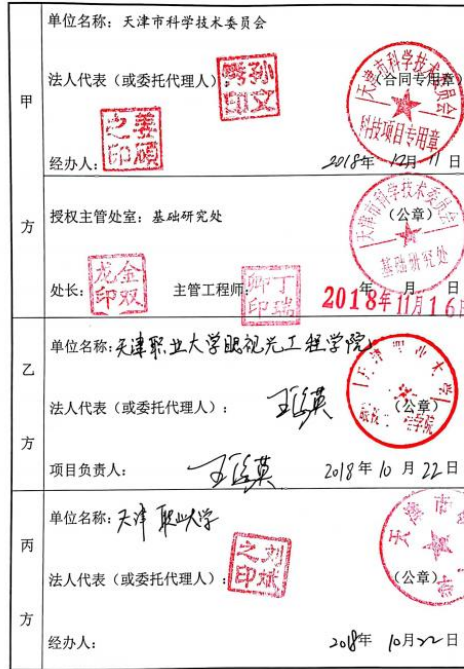 甲方
单位名称：天津市科学技术委员会
法人代表（或委托代理人）：
孙文
印
（合同专用章）
天津市科学技术委员会
科技项目专用章
姜硕
之印
经办人：
2018年 12月 11 日
授权主管处室：基础研究处
（公章）
天津市科学技术委员会
基础研究处
处长：
金双
龙印
主管工程师：
丁瑞
卿印
年 月 日
2018年11月16日
乙方
单位名称：天津职业大学眼视光工程学院
法人代表（或委托代理人）：
（公章）
项目负责人：
2018年 10 月 22日
丙方
单位名称：天津职业大学
法人代表（或委托代理人）：
刘斌
之印
（公章）
天津市
经办人：
2018年 10月22日